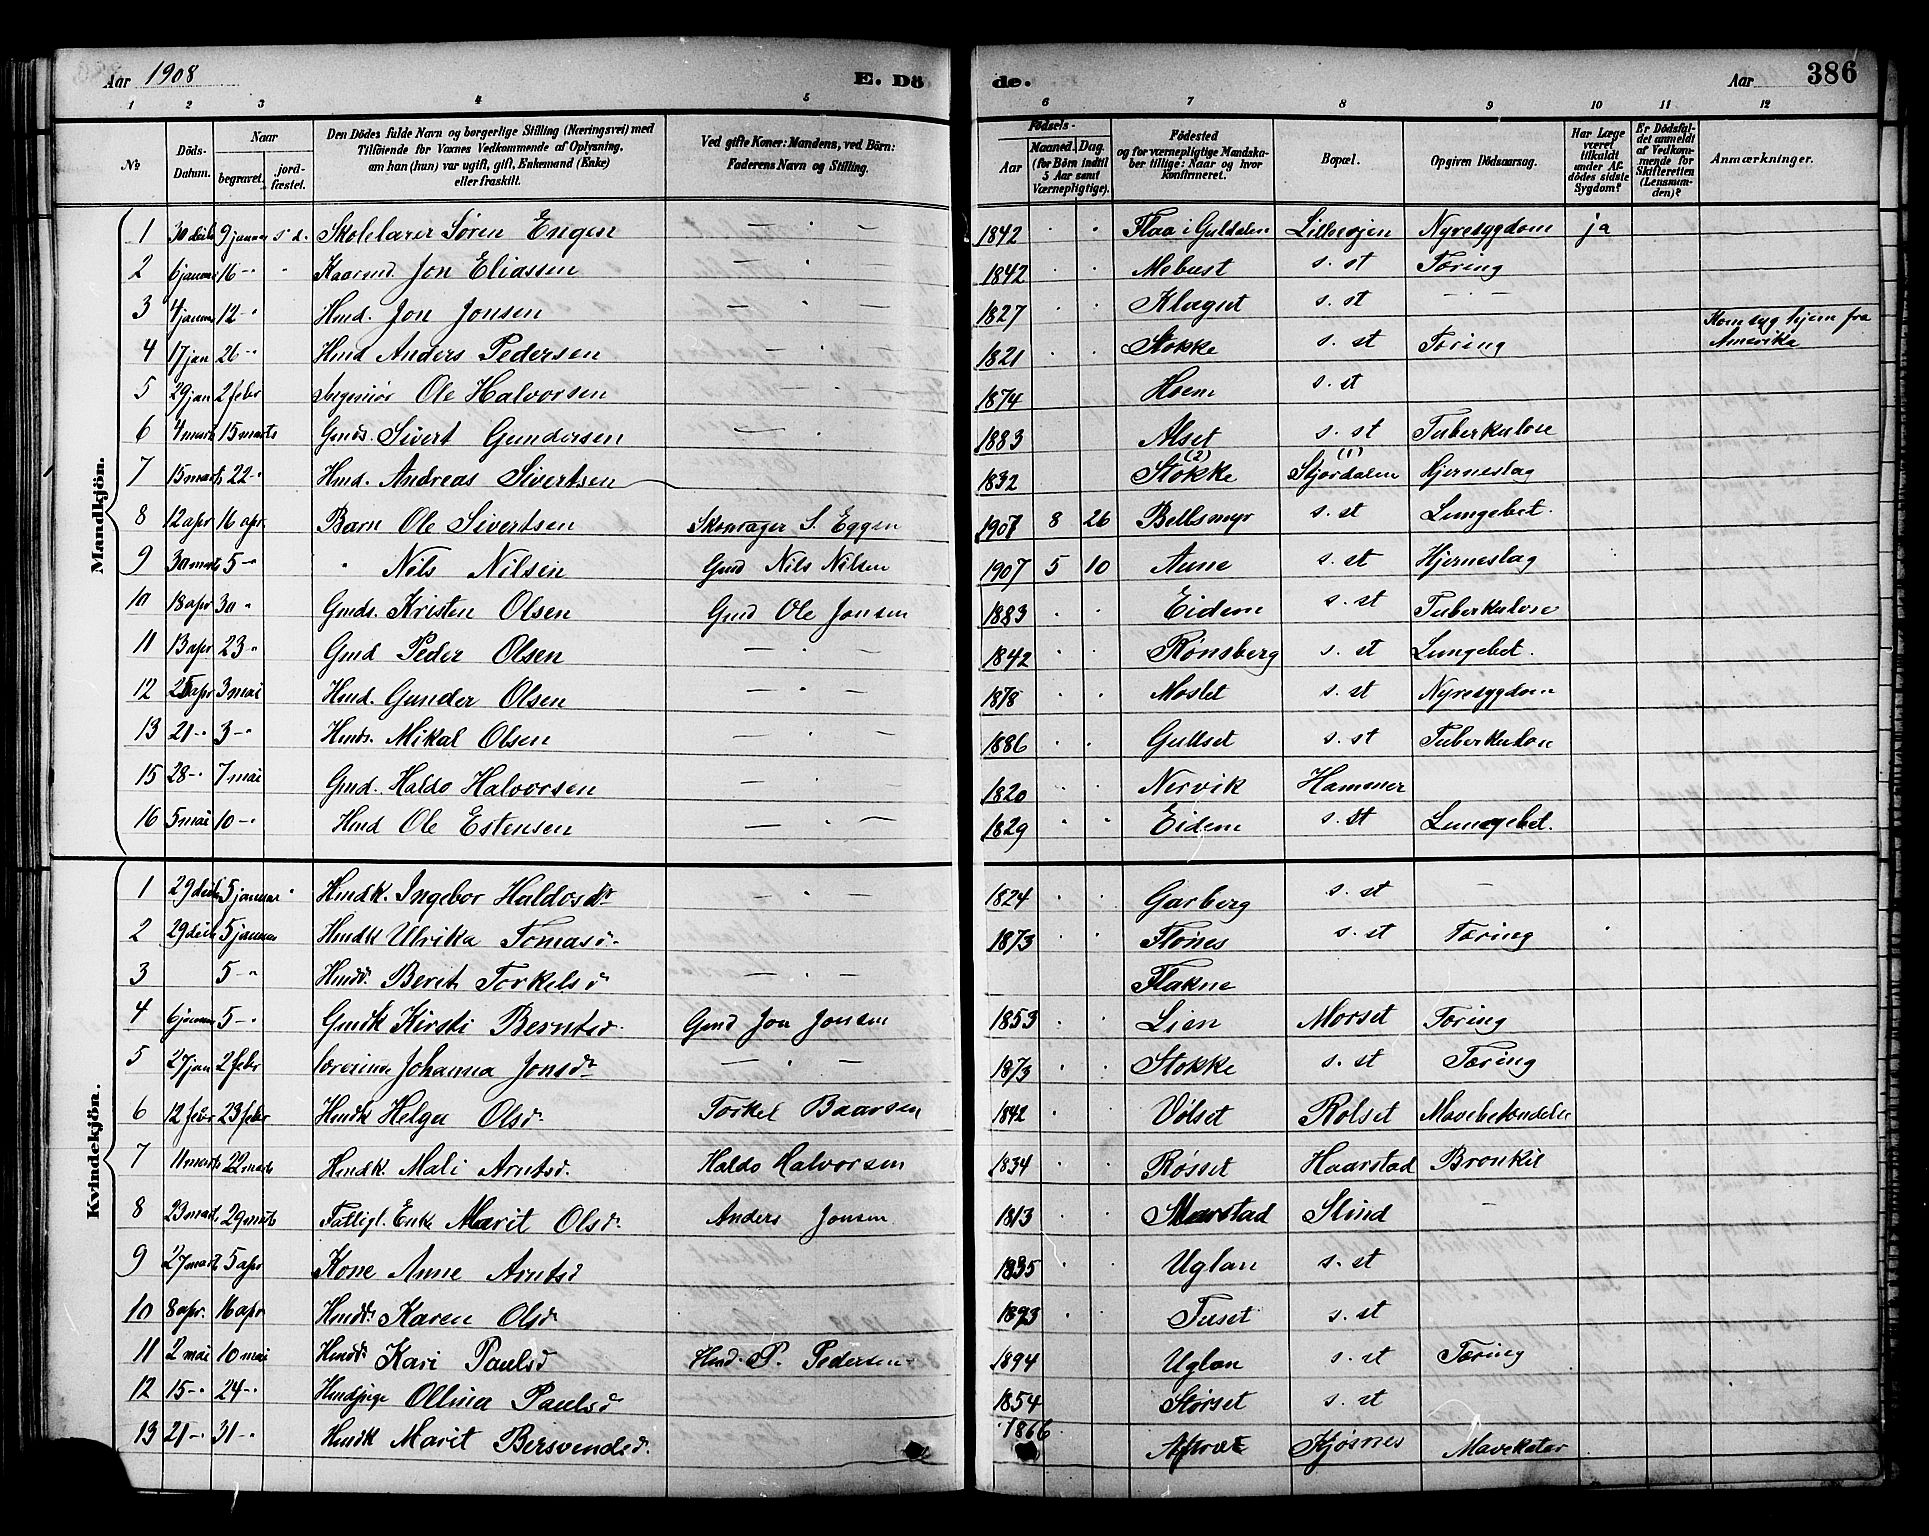 Aar 1908
E. Dö
de.
Aar
386
1 2 3 4 5 6 7 8 9 10 11 12
№
Döds-Datum.
Naar
begravet.
jord-fæstet.
Den Dödes fulde Navn og borgerlige Stilling (Næringsvei) med
Tilföiende for Voxnes Vedkommende af Oplysning,
om han (hun) var ugift, gift, Enkemand (Enke)
eller fraskilt.
Ved gifte Koner: Mandens, ved Börn:
Faderens Navn og Stilling.
Födsels-
Aar
Maaned. Dag.
(for Börn indtil
5 Aar samt
Værnepligtige).
Födested
og for værnepligtige Mandska-
ber tillige: Naar og hvor
konfirmeret.
Bopæl.
Opgiven Dödsaarsag.
Har Læge
været
tilkaldt
under Af-
dödes sidste
Sygdom?
Er Dödsfal-
det anmeldt
af Vedkom-
mende for
Skifteretten
(Lensman-
den)?
Anmærkninger.
Mandkjön.
1 30 decbr 9 januar s. d. Skolelærer Søren Engen — " — 1842 " " Flaa i Guldalen Lillevojen Nyresygdom ja
2 6 januar 16 -" " Kaarmd. Jon Eliassen — " — 1842 " " Mebust s. st Tæring
3 4 januar 12 -" Hmd. Jon Jonsen — " — 1827 " " Klæget s. st — " —
4 17 jan 26 -" Hmd Anders Pedersen — " — 1821 " " Stokke s. st Tæring Kom syg hjem fra Amerika
5 29 jan 2 febr Ingeniør Ole Halvorsen — " — 1874 " " Hoem s. st
6 4 marts 15 marts Gmds. Sivert Gundersen — " 1883 " " Alset s. st Tuberkulose
7 15 marts 22 -" Hmd. Andreas Sivertsen — " — 1832 " " Stokke (2) Stjørdalen (1) Hjerneslag
8 12 apr 16 apr. Barn Ole Sivertsen Skomager S. Eggen 1907 8 26 Bellsmyr s. st Lungebet.
9 30 marts 5 -" " Nils Nilsen Gmd Nils Nilsen 1907 5 10 Aune s. st Hjerneslag
10 18 apr 30 " Gmds. Kristen Olsen Gmd Ole Jonsen 1883 " " Eidem s. st Tuberkulose
11 13 apr 23 -" Gmd Peder Olsen — " — 1842 " " Rønsberg s. st Lungebet.
12 25 apr 3 mai Hmd. Gunder Olsen — " — 1878 " " Moslet s. st Nyresygdom
13 21 -" 3 -" Hmds. Mikal Olsen — " — 1886 " " Gullset s. st Tuberkulose
15 28 -" 7 mai Gmd. Haldo Halvorsen — " — 1820 " " Nervik Hammer
16 5 mai 10 -" Hmd Ole Estensen — " — 1829 " " Eidem s. st Lungebet.
Kvindekjön.
1 29 decbr 5 januar " Hmdk. Ingebor Haldosdr — " — 1824 " " Garberg s. st —
2 29 decbr 5 januar Hmdk Ulrika Tomasd. — " — 1873 " " Flønes s. st Tæring
3 5 -" Hmdd. Berit Torkelsd — " — Flakne
4 6 januar 5 -" Gmdk Kirsti Berntsd. Gmd Jon Jonsen 1853 " " Lien Morset Tæring
5 27 jan 2 febr Johanna Jonsdr — " — 1873 " " Stokke s. st Tæring
6 12 febr 23 febr Hmdk Helga Olsd. Torkel Baarsen 1842 " " Vølset Rolset Mavebetændelse
7 11 marts 22 marts Hmdk. Mali Arntsd. Haldo Halvorsen 1834 " " Røsset Haarstad Bronkit
8 23 marts 29 marts Fattigl. Enk. Marit Olsd. Anders Jonsen 1813 " " Marstad Slind —
9 27 marts 5 apr Kone Anne Arntsd 1835 " " Uglan s. st
10 8 apr. 16 apr Hmdd. Karen Olsd. 1893 " " Tuset s. st
11 2 mai 10 mai Hmdd. Kari Paulsd Hmd. P. Pedersen 1894 " " Uglan s. st Tæring
12 15 -" 24 -" Hmdpige Ollina Paulsd 1854 Størset s. st
13 21 -" 31 -" Hmdk Marit Bersvendsd. 1866 Aftræt Kjøsnes Mavekatar